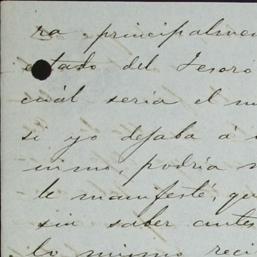 ra principalmen
estado del Tesoro
cuál sería el m
si yo dejaba á
nimo, podría
le manifesté, qu
sin saber antes
lo mismo reci